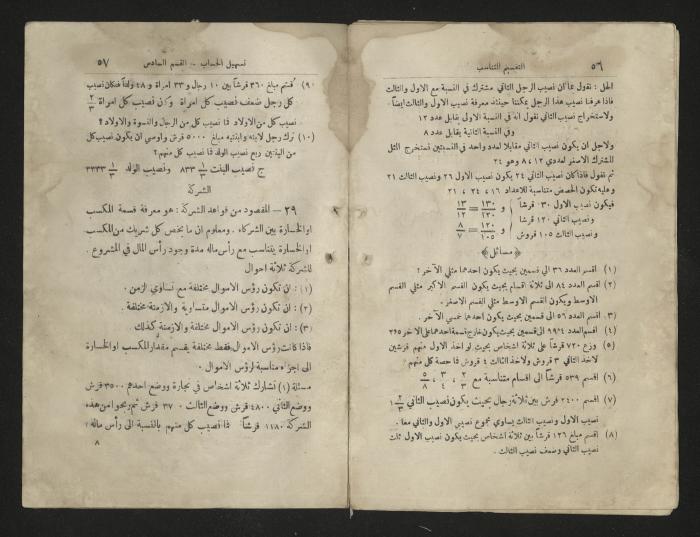 ٥٦
التقسيم المتناسب
الحل : نقول بما ان نصيب الرجل الثاني مشترك في النسبة مع الاول والثالث
فاذا عرفنا نصيب هذا الرجل يمكننا حينئذ معرفة نصيب الاول والثالث ايضاً
ولاستخراج نصيب الثاني نقول انه في النسبة الاولى يقابل عدد ١٢
وفي النسبة الثانية يقابل عدد ٨
ولاجل ان يكون نصيب الثاني مقابلا لعدد واحد في النسبتين نستخرج المثل
المشترك الاصغر لعددي ١٢ و ٨ وهو ٢٤
ثم نقول فاذا كان نصيب الثاني ٢٤ يكون نصيب الاول ٢٦ ونصيب الثالث ٢١
وعليه تكون الحصص متناسبة للاعداد ٢٦ ، ٢٤ ، ٢١
فيكون نصيب الاول ١٣٠ قرشاً و ١٣٠/١٢٠ = ١٣/١٢
ونصيب الثاني ١٢٠ قرشا
ونصيب الثالث ١٠٥ قروش و ١٢٠/١٠٥ = ٨/٧
مسائل
(١) اقسم العدد ٣٦ الى قسمين بحيث يكون احدهما مثلي الآخر ؟
(٢) اقسم العدد ٨٤ الى ثلاثة اقسام بحيث يكون القسم الاكبر مثلي القسم
الاوسط ويكون القسم الاوسط مثلي القسم الاصغر .
(٣) اقسم العدد ٥٦ الى قسمين بحيث يكون احدهما خمسي الآخر .
(٤) اقسم العدد ٩٩٤ الى قسمين بحيث يكون خارج قسمة احدهما على الآخر
(٥) وزع ٧٢٠ قرشاً على ثلاثة اشخاص بحيث لو اخذ الاول منهم قرشين
لاخذ الثاني ٣ قروش ولاخذ الثالث ٤ قروش فما حصة كل منهم
(٦) اقسم ٥٣٩ قرشاً الى اقسام متناسبة مع ٢/٣ ، ٣/٤ ، ٥/٨
(٧) اقسم ٢٤٠٠ قرش بين ثلاثة رجال بحيث يكون نصيب الثاني ١ ٢/٣
نصيب الاول ونصيب الثالث يساوي مجموع نصيبي الاول والثاني معا .
(٨) اقسم مبلغ ١٢٦ قرشاً بين ثلاثة اشخاص بحيث يكون نصيب الاول ثلث
نصيب الثاني وضعف نصيب الثالث .
تسهيل الحساب – القسم السادس
٥٧
(٩) قسم مبلغ ٣٦٠ قرشاً بين ١٠ رجال و ٣٣ امرأة و ٤٨ ولداً فكان نصيب
كل رجل ضعف نصيب كل امرأة وكان نصيب كل امرأة ٢/٣
نصيب كل من الاولاد فما نصيب كل من الرجال والنسوة والاولاد ؟
(١٠) ترك رجل لابنه وابنتيه مبلغ ٥٠٠٠ قرش واوصى ان يكون نصيب كل
من البنتين ربع نصيب الولد فما نصيب كل منهم ؟
ج نصيب البنت ١/٣ ٨٣٣ ونصيب الولد ١/٣ ٣٣٣٣
الشركة
٣٩ – المقصود من قواعد الشركة : هو معرفة قسمة المكسب
او الخسارة بين الشركاء . ومعلوم ان ما يخص كل شريك من المكسب
او الخسارة يتناسب مع رأس ماله مدة وجود رأس المال في المشروع .
للشركة ثلاثة احوال
(١) : ان تكون رؤس الاموال مختلفة مع تساوي الزمن .
(٢) : ان تكون رؤس الاموال متساوية والازمنة مختلفة .
(٣) : ان تكون رؤس الاموال مختلفة والازمنة كذلك .
فاذا كانت رؤس الاموال فقط مختلفة يقسم مقدار المكسب او الخسارة
الى اجزاء مناسبة لرؤس الاموال .
مسئلة (١) تشارك ثلاثة اشخاص في تجارة ووضع احدهم ٣٥٠٠ قرش
ووضع الثاني ٤٨٠٠ قرش ووضع الثالث قرش ثم ربحوا من هذه
الشركة ١١٨٠ قرشاً فما نصيب كل منهم بالنسبة الى رأس ماله ؟
٨